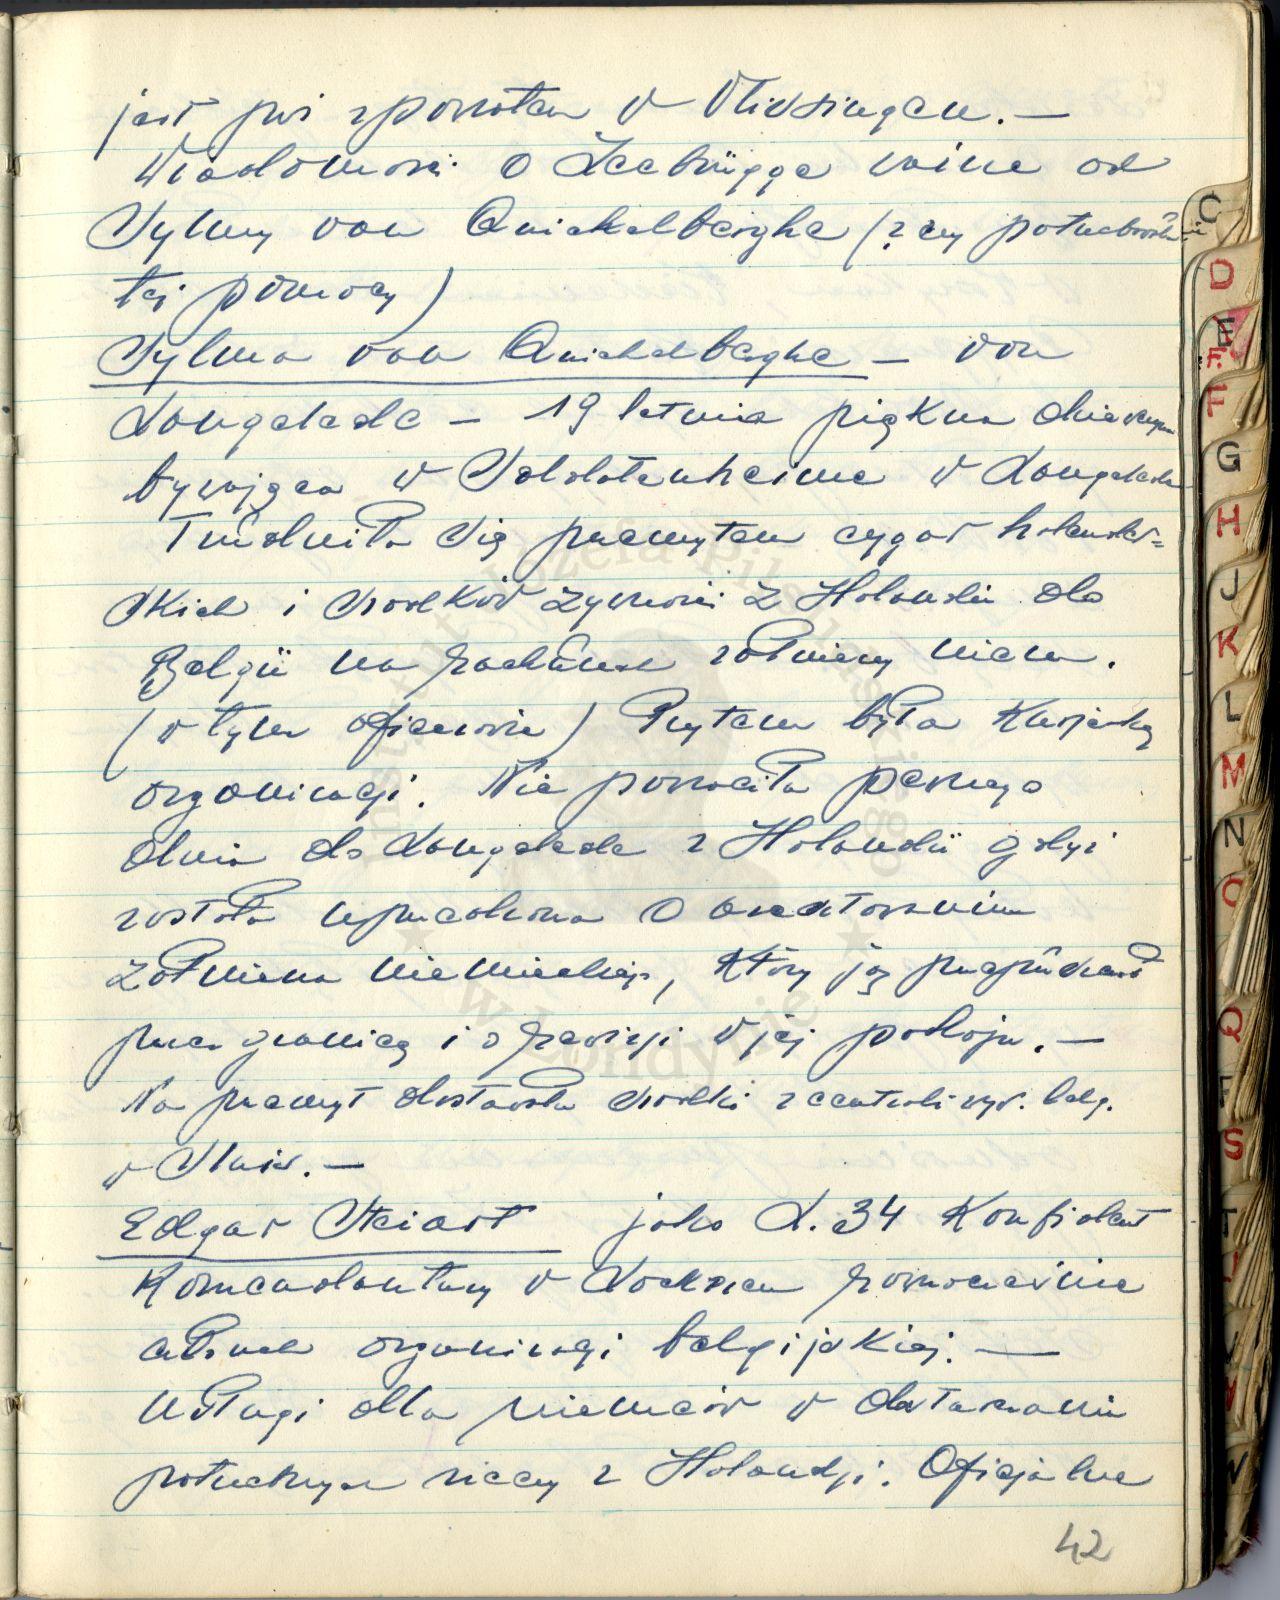 jest już zpowrotem w Vlissingen. —
Wiadomości o Zeebrügge ważne od
Sylmy van Quickelberghe (? czy potwierdziła
tej pomocy)
Sylma van Quickelberghe — von
Langelede — 19 letnia piękna dziewczyna
bywająca w Soldatenheime w Langelede
Trudniła się przemytem cygar holender=
skich i środków żywności z Holandii do
Belgii na rachunek żołnierzy niem.
(w tym oficerowie) Przytem była kurjerką
organizacji. Nie powróciła pewnego
dnia do Langelede z Holandii gdyż
została uprzedzona o aresztowaniu
żołnierza niemieckiego, który ją przepuszczał
przez granicę i o rewizji w jej pokoju. —
Na przemyt dostawała środki z centrali wyw. belg.
w Sluis. —
Edgar Steiart jako L. 34 Konfident
Komendantury w Lockren równocześnie
członek organizacji belgijskiej. —
Usługi dla niemców w dostarczaniu
potrzebnych rzeczy z Holandji. Oficjalnie
42
C
D
E
F
F
G
H
J
K
L
M
N
O
Q
S
T
U
W
Instytut Józefa Piłsudskiego
w Londynie